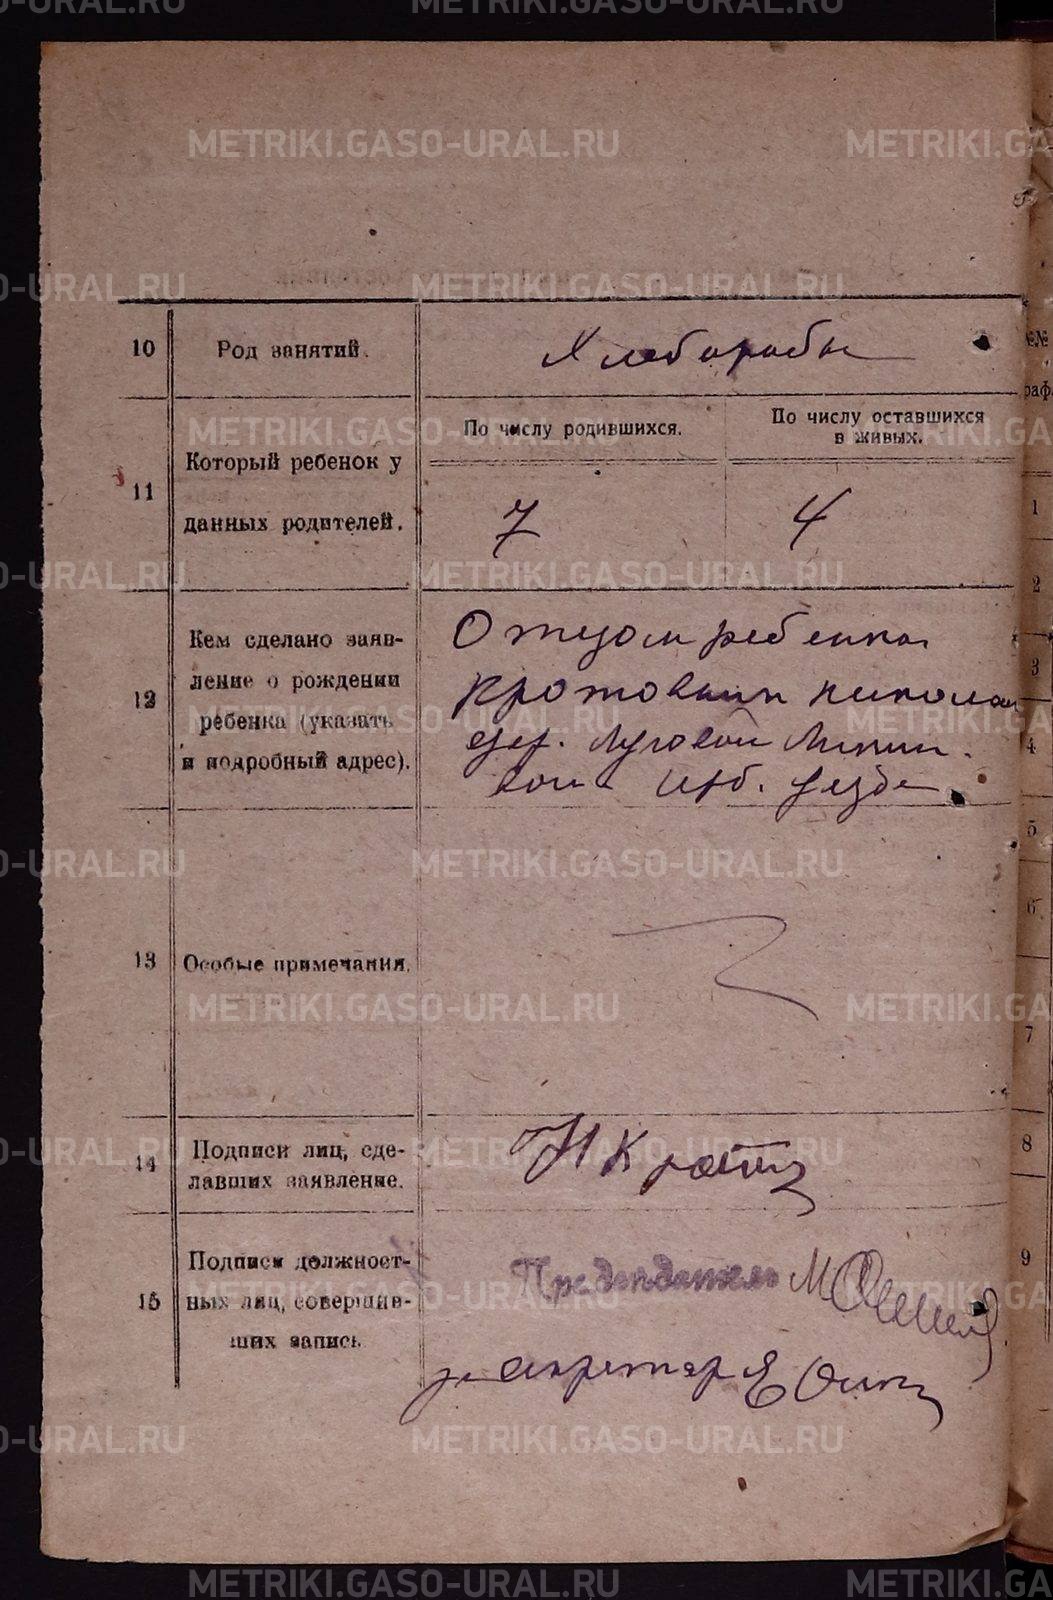 METRIKI.GASO-URAL.RU
10 Род занятий. Хлеборобы
11 Который ребенок у данных родителей.
По числу родившихся. По числу оставшихся в живых.
7 4
12 Кем сделано заяв-
ление о рождении
ребенка (указать
и подробный адрес).
Отцом ребенка
Кротовым Никола
дер. Луговой
Ирб. уезда
13 Особые примечания.
14 Подписи лиц, сде-
лавших заявление.
Н Крот
15 Подписи должност-
ных лиц, совершив-
ших запись
Председатель М
секретарь Е
№№
раф.
1
2
3
4
5
6
7
8
9